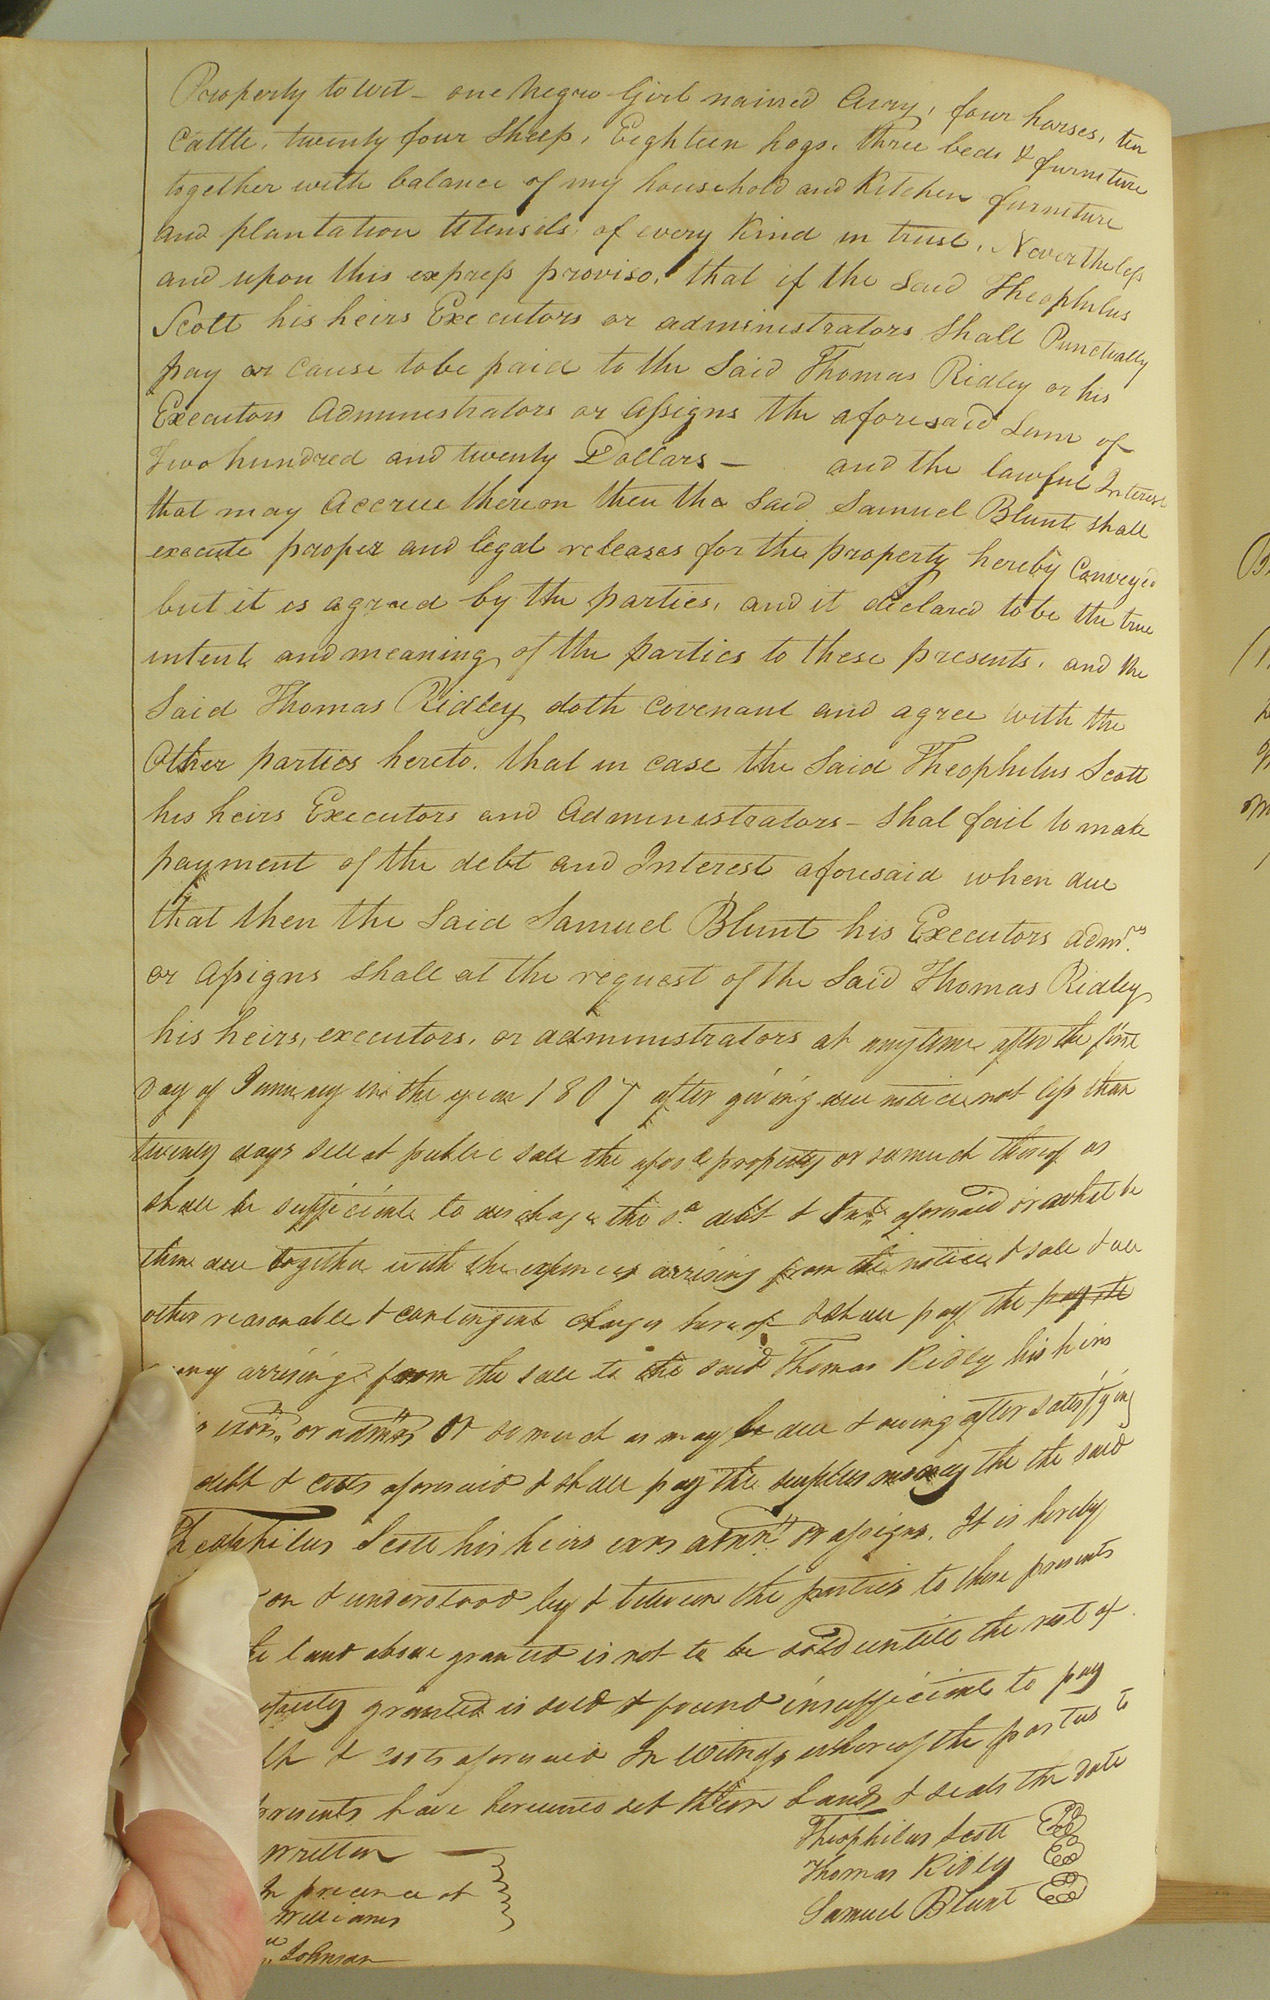 Property to wit - one Negro Girl named Avry, four horses, ten
Cattle, twenty four Sheep, Eighteen hogs, three beds & furniture
together with balance of my household and Kitchen furniture
and plantation Utensils of every Kind in trust, Nevertheless
and upon this express proviso, that if the Said Theophilus
Scott his heirs Executors or administrators Shall Punctually
pay or Cause to be paid to the Said Thomas Ridley or his
Executors Administrators or Assigns the aforesaid Sum of
Two hundred and twenty Dollars — and the lawful Interest
that may Accrue thereon then the Said Samuel Blunt shall
execute proper and legal releases for the property hereby Conveyed
but it is agreed by the parties, and it declared to be the true
intent and meaning of the parties to these presents, and the
Said Thomas Ridley doth Covenant and agree with the
Other parties hereto, that in case the Said Theophilus Scott
his heirs Executors and Administrators - Shal fail to make
payment of the debt and Interest aforesaid when due
that then the Said Samuel Blunt his Executors admrs
or Assigns Shall at the request of the Said Thomas Ridley
his heirs, executors, or administrators at any time after the first
Day of January in the year 1807 after giving due notice not less than
twenty days sell at public sale the aforsd property or so much thereof as
shall be sufficient to discharge the sd debt & Intt aforesaid or what be
then due together with the expences arrising from the notice & sale & all
other reasonable & contingent charges hereof & shall pay the
arrising from the sale to the said Thomas Ridley his heirs
exors. or admrs so much as may be due & owing after satisfying
debt & costs aforesaid & shall pay the surplus money the the said
Theophilus Scott his heirs exrs admrs or assigns. It is hereby
on & understood by & between the parties to these presents
the land above granted is not to be sold untill the rest of
granted is sold & found insufficient to pay
& costs aforesaid In Witness whereof the parties to
presents have hereunto set their hands & seals the date
written
Theophilus Scott
In presence of
Thomas Ridley
Williams
Samuel Blunt
Johnson